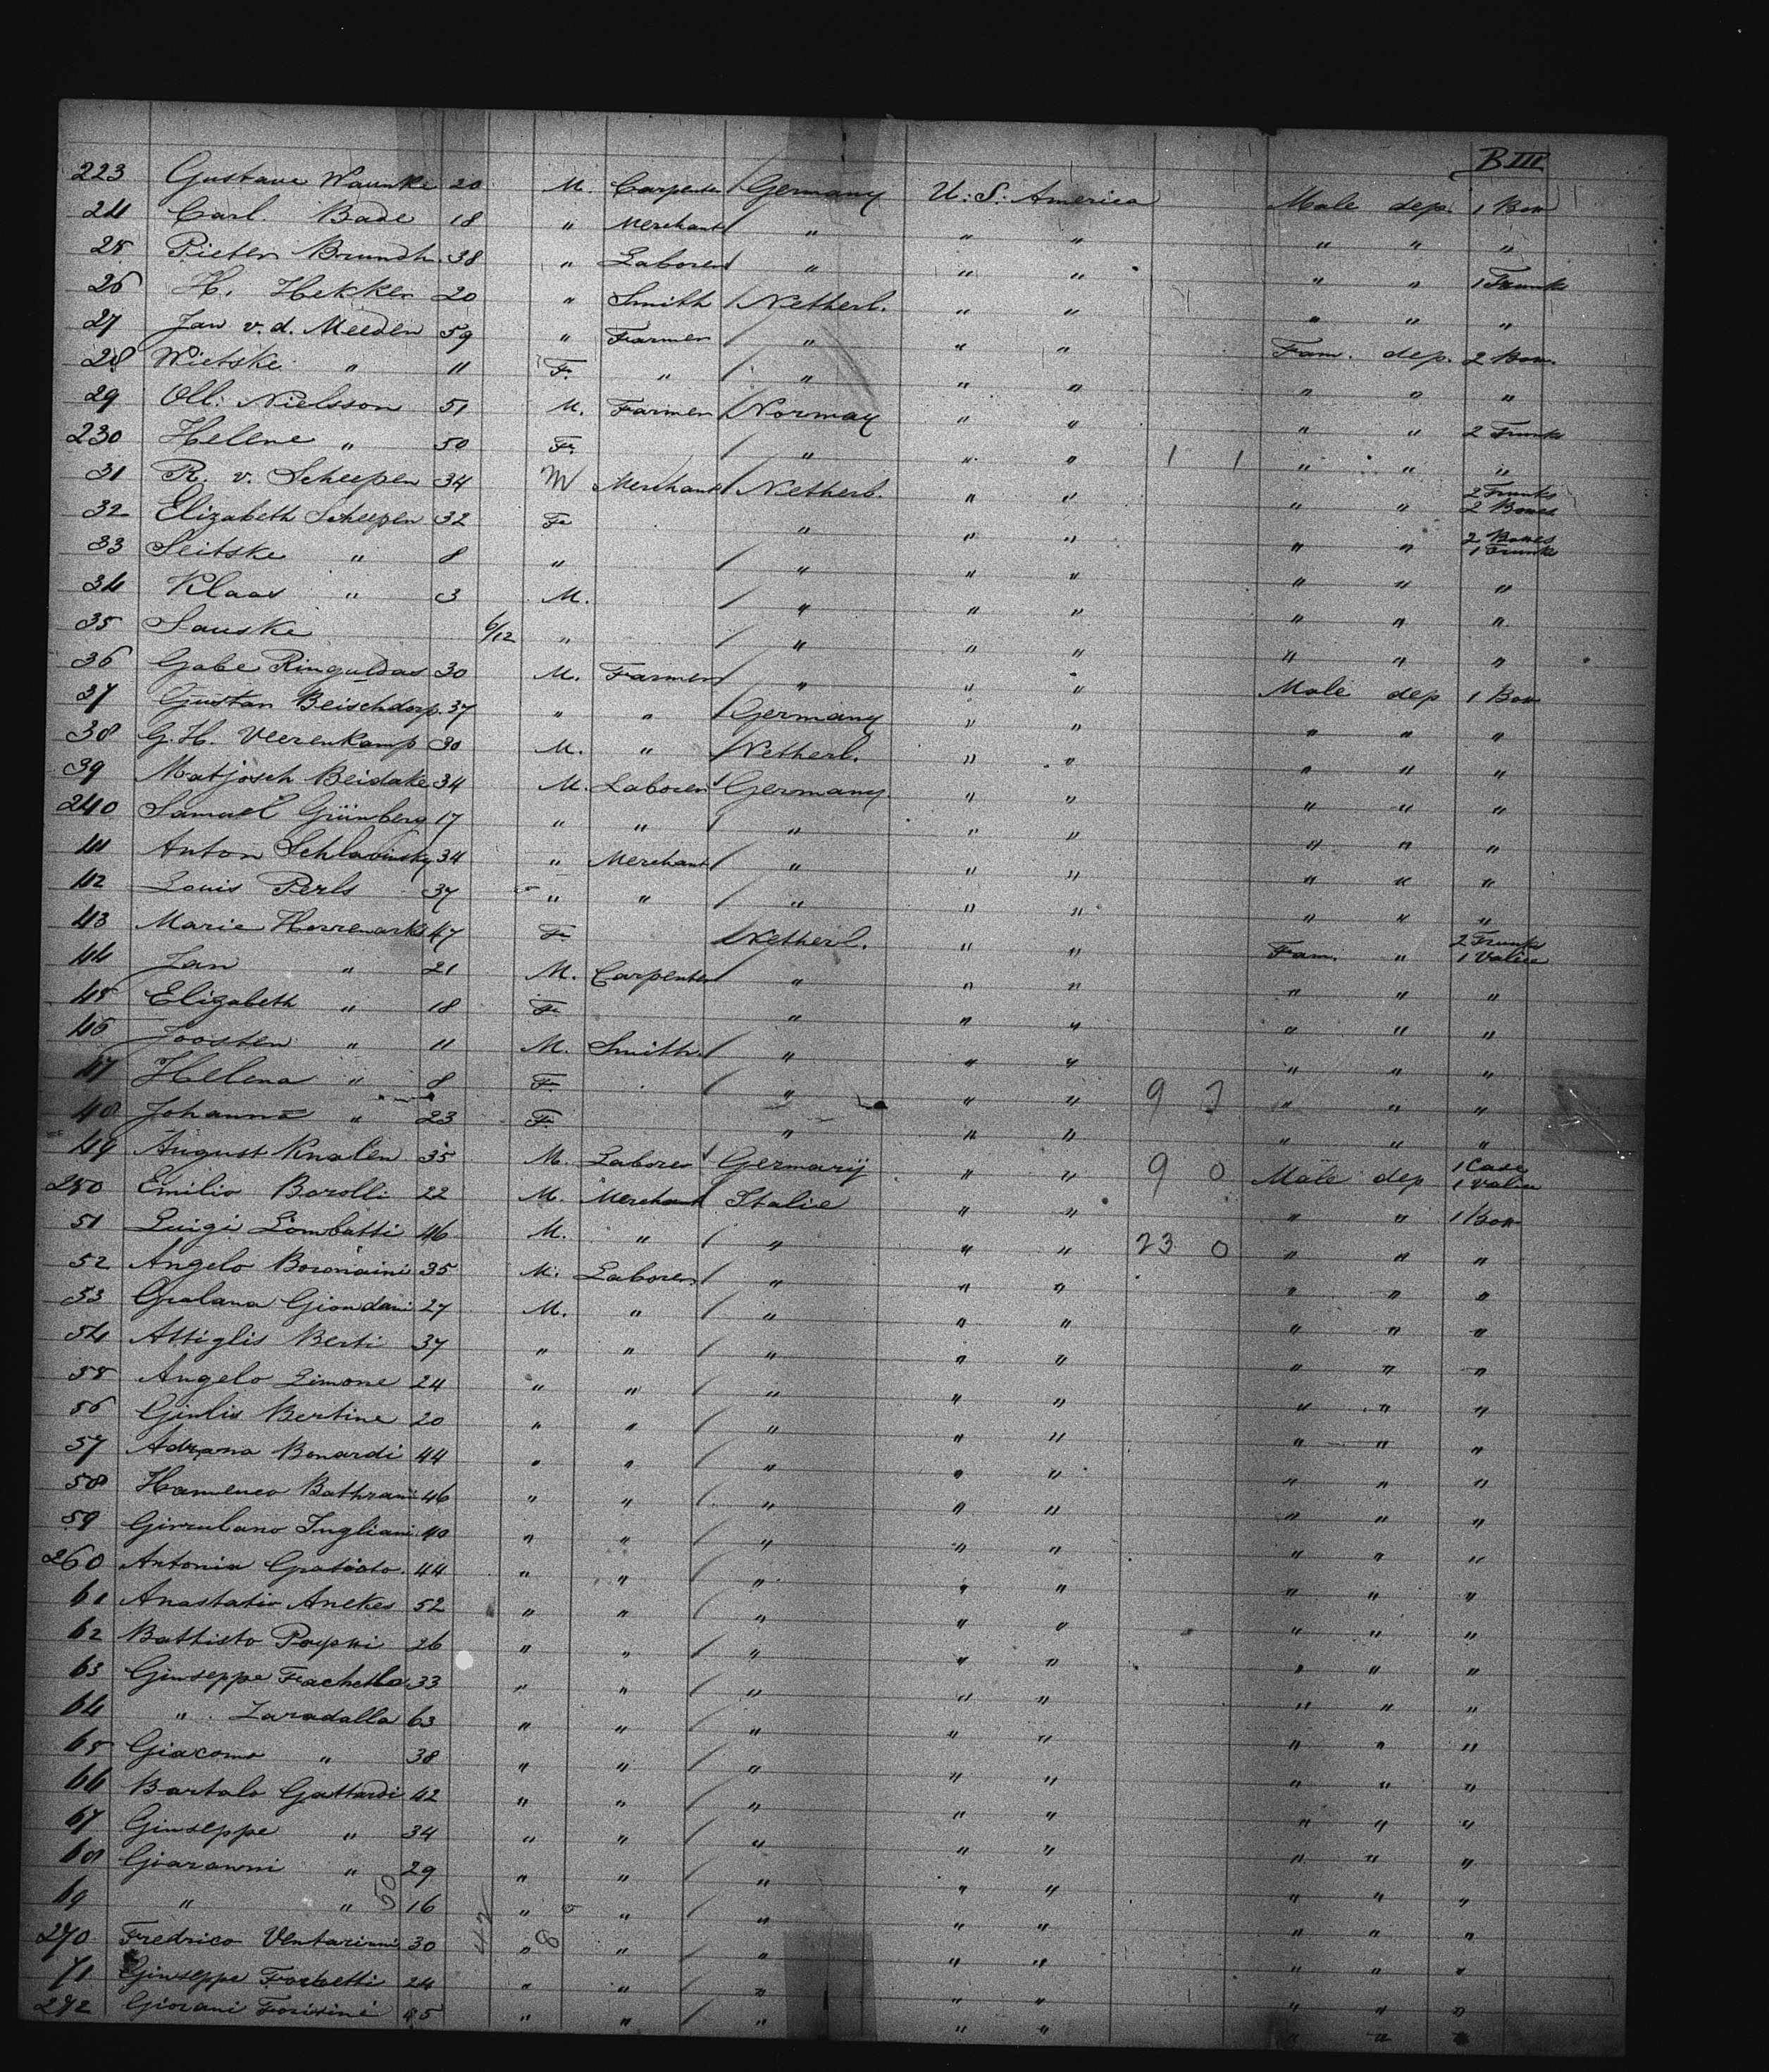 B III
223 Gustave Waunke 20 M. Carpenter Germany U. S. America Male dep. 1 Box
24 Carl. Bade 18 " Merchant " " " " " "
25 Pieter Brundh. 38 " Laborer " " " " " 1 Trunk
26 H. Hekker 20 " Smith Netherl. " " " " "
27 Jan v. d. Meeden 59 " Farmer " " " Fam. dep. 2 Box.
28 Wietske " 11 F. " " " " " " "
29 Oll. Nielsson 51 M. Farmer Norway " " " " 2 Trunks
230 Helene " 50 F. " " " 1 1 " " "
31 R. v. Scheepen 34 M Merchant Netherl. " " " " 2 Trunks 2 Boxes
32 Elizabeth Scheepen 32 F. " " " " " 2 Boxes 1 Trunk
33 Seitske " 8 " " " " " " "
34 Klaas " 3 M. " " " " " "
35 Sauske 6/12 " " " " " " "
36 Gabe Ringuldas 30 M. Farmer " " " Male dep 1 Box
37 Gustan Beischdorp. 37 " " Germany " " " " "
38 G. H. Veerenkamp 30 M. " Netherl. " " " " "
39 Matjosch Beidake 34 M. Laborer Germany. " " " " "
240 Samuel Grünberg 17 " " " " " " " "
41 Anton Schlavinsky 34 " Merchant " " " " " "
42 Louis Perls 37 " " " " " " " "
43 Marie Herrewark 47 F. Netherl. " " Fam. " 2 Trunks 1 Valice
44 Jan " 21 M. Carpenter " " " " " "
45 Elizabeth " 18 F. " " " " " "
46 Joosten " 11 M. Smith " " " " " "
47 Helena " 8 F. " " " 9 7 " " "
48 Johanna " 23 F. " " " " " "
49 August Knalen 35 M. Laborer Germany " " 9 0 Male dep 1 Case 1 Valice
250 Emilio Barolli 22 M. Merchant Italie " " " " 1 Box
51 Luigi Lombatti 46 M. " " " " 23 0 " " "
52 Angelo Boronaini 35 M. Laborer " " " " " "
53 Gralana Giondani 27 M. " " " " " " "
54 Attiglis Berti 37 " " " " " " " "
55 Angelo Limone 24 " " " " " " " "
56 Giulis Bertine 20 " " " " " " " "
57 Adrana Bonardi 44 " " " " " " " "
58 Hameneo Bathrani 46 " " " " " " " "
59 Girrulano Jugliani 40 " " " " " " " "
260 Antonia 44 " " " " " " " "
61 Anastatio Anekes 52 " " " " " " " "
62 Battisto 26 " " " " " " " "
63 Giuseppe Frachetta 33 " " " " " " " "
64 " Zaradalla 63 " " " " " " " "
65 Giacomo " 38 " " " " " " " "
66 Bartalo Gattardi 42 " " " " " " " "
67 Giuseppe " 34 " " " " " " " "
68 Giaranni " 29 " " " " " " " "
69 " " 50 16 " " " " " " " "
270 Fredrico Ventarinni 30 42 " 8 " " " " " " "
71 Giuseppe Forbetti 24 " " " " " " " "
272 Giorani Forisini 25 " " " " " " " "